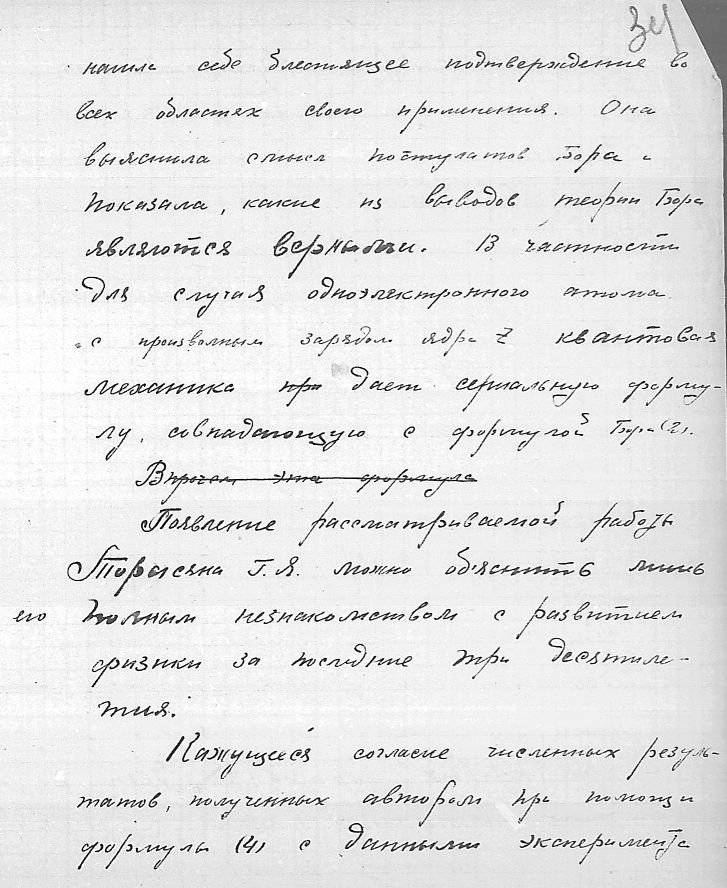 34
нашла себе блестящее подтверждение во
всех областях своего применения. Она
выяснила смысл постулатов Бора и
показала, какие из выводов теории Бора
являются верными. В частности
для случая одноэлектронного атома
с произвольным зарядом ядра Z квантовая
механика при дает сериальную форму-
лу, совпадающую с формулой Бора (2).
Впрочем эта формула
Появление рассматриваемой работы
Торосяна Г.Я. можно объяснить лишь
его полным незнакомством с развитием
физики за последние три десятиле-
тия.
Кажущееся согласие численных резуль-
татов, полученных автором при помощи
формулы (4) с данными эксперимента